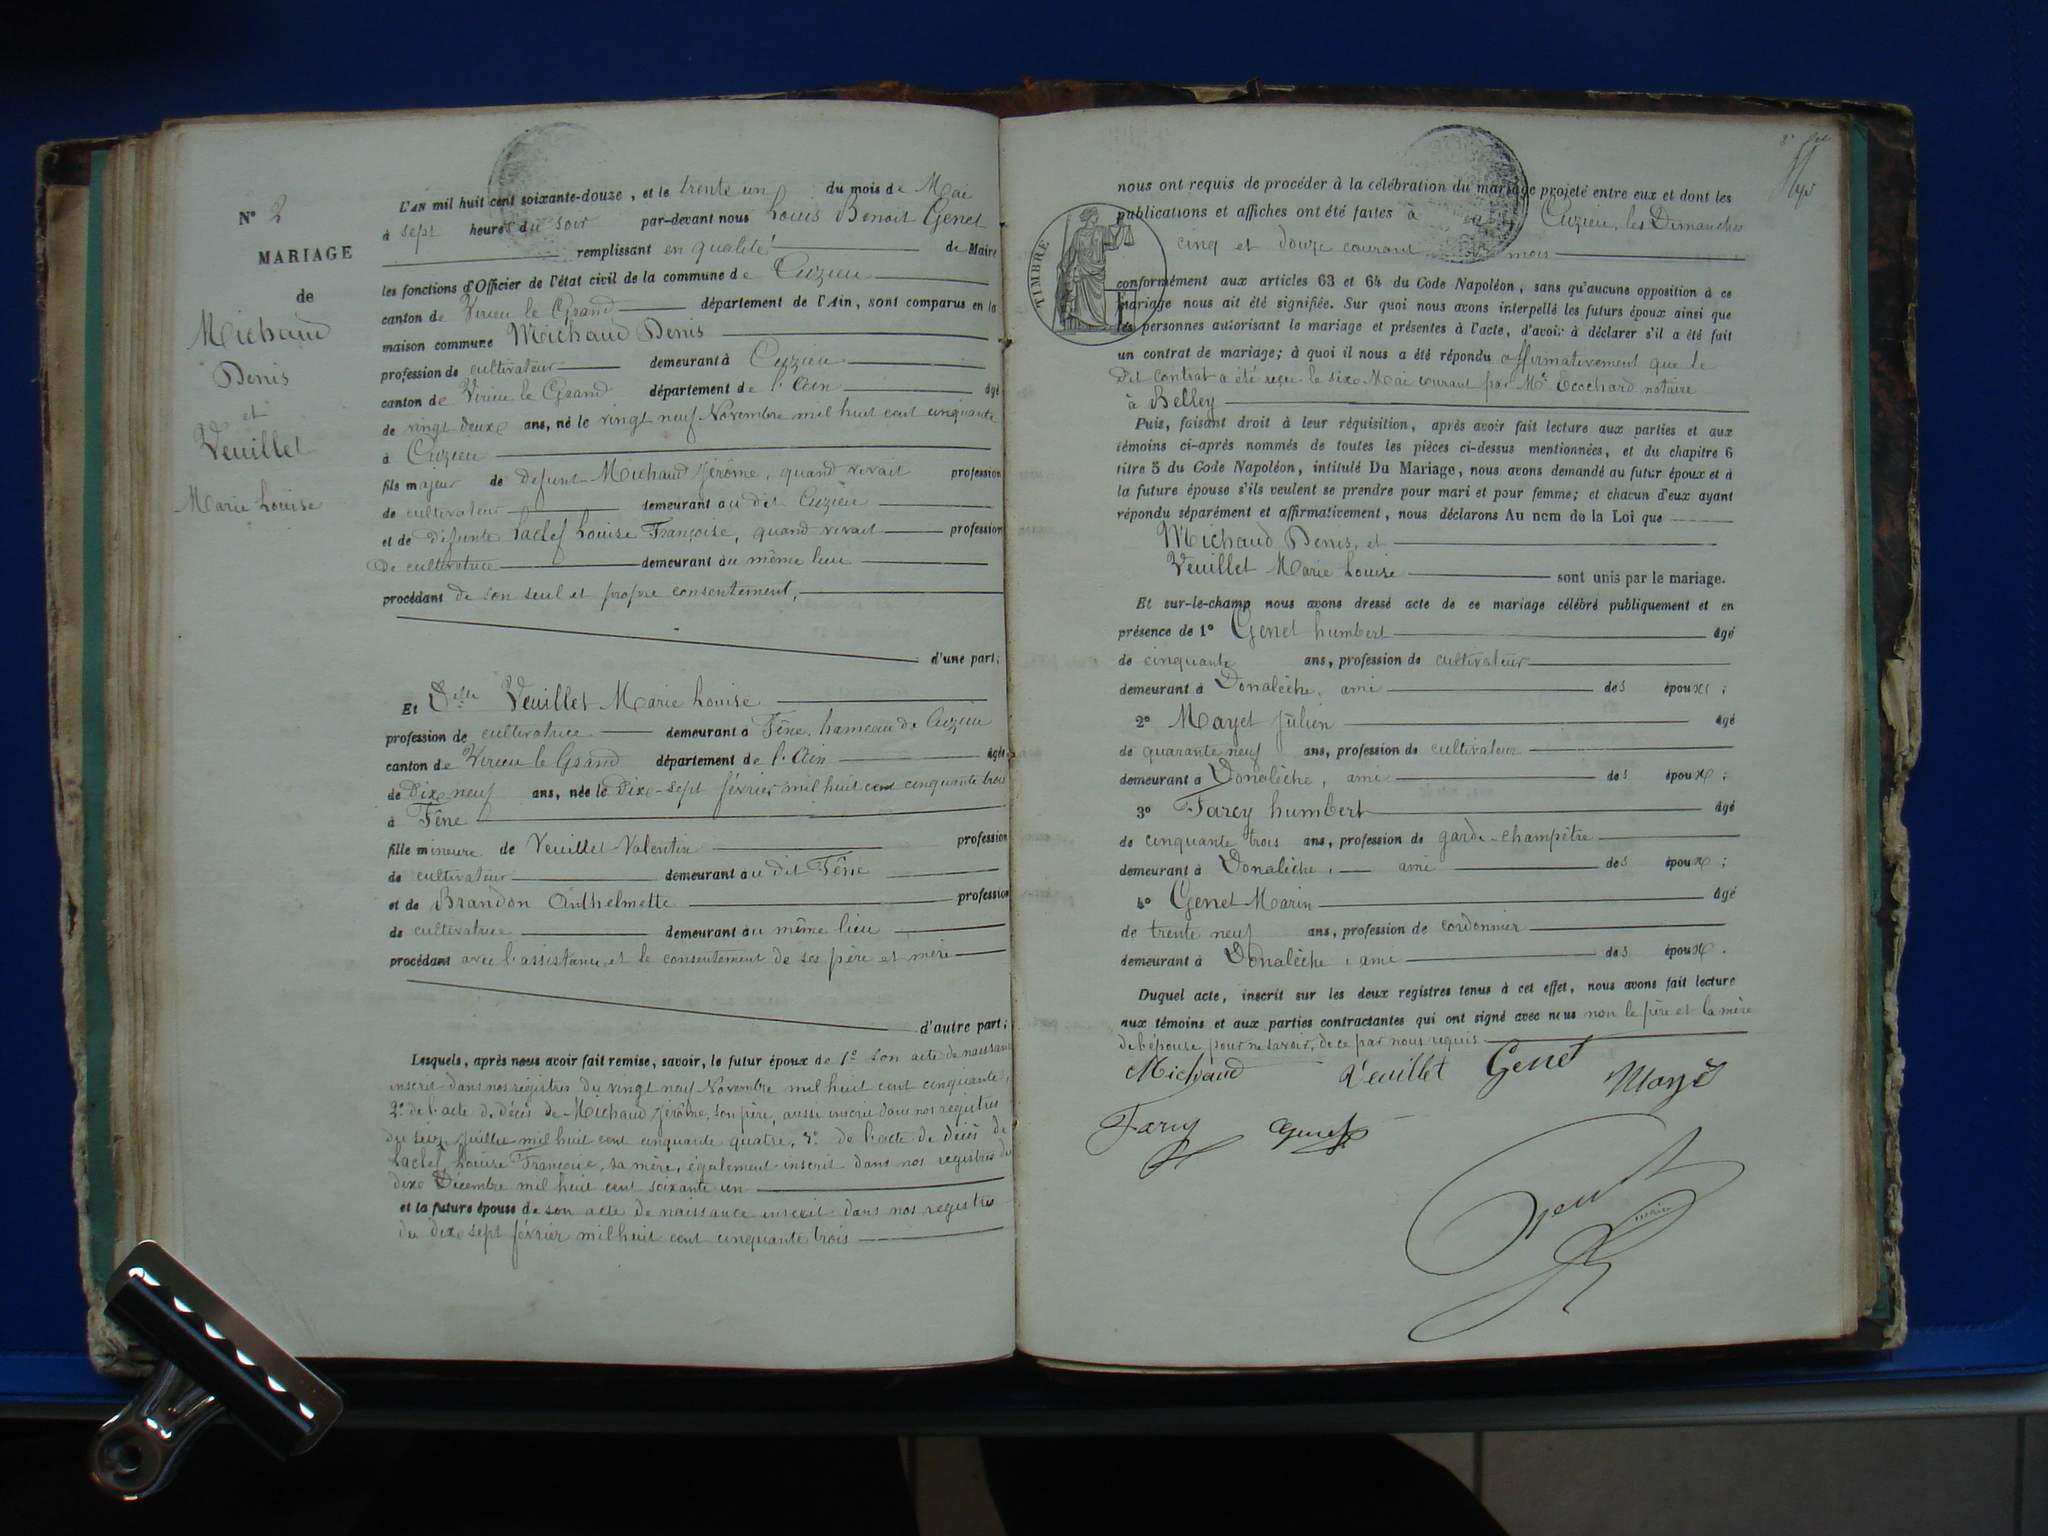 N° 2
MARIAGE
de
Michaud
Denis
et
Veuillet
Marie Louise
L'AN mil huit cent soixante-douze, et le trente un du mois de Mai
à sept heures du soir par-devant nous Louis Benoit Genet
remplissant en qualité de Maire
les fonctions d'Officier de l'état civil de la commune de Cuzieu
canton de Virieu le Grand département de l'Ain, sont comparus en la
maison commune Michaud Denis
profession de cultivateur demeurant à Cuzieu
canton de Virieu le Grand département de l'Ain âgé
de vingt deux ans, né le vingt neuf Novembre mil huit cent cinquante
à Cuzieu
fils majeur de defunt Michaud Jérôme, quand vivait profession
de cultivateur demeurant au dit Cuzieu
et de defunte Laclef Louise Françoise, quand vivait profession
de cultivatrice demeurant au même lieu
procédant de son seul et propre consentement,
d'une part;
Et Delle Veuillet Marie Louise
profession de cultivatrice demeurant à Fêne, hameau de Cuzieu
canton de Virieu le Grand département de l'Ain âgée
de Dixe neuf ans, née le Dixe-sept février mil huit cent cinquante trois
à Fêne
fille mineure de Veuillet Valentin profession
de cultivateur demeurant au dit Fêne
et de Brandon Anthelmette profession
de cultivatrice demeurant au même lieu
procédant avec l'assistance et le consentement de ses père et mère
d'autre part;
Lesquels, après nous avoir fait remise, savoir, le futur époux de 1° son acte de naissance
inscrit dans nos registres du vingt neuf Novembre mil huit cent cinquante,
2° de l'acte de décès de Michaud Jérôme, son père, aussi inscrit dans nos registres
du seize Juillet mil huit cent cinquante quatre, 3° de l'acte de décès de
Laclef, Louise Françoise, sa mère, également inscrit dans nos registres du
dixe Décembre mil huit cent soixante un
et la future épouse de son acte de naissance inscrit dans nos registres
du dixe sept février mil huit cent cinquante trois
nous ont requis de procéder à la célébration du mariage projeté entre eux et dont les
publications et affiches ont été faites à Cuzieu, les Dimanches
cinq et douze courant mois
TIMBRE
conformément aux articles 63 et 64 du Code Napoléon, sans qu'aucune opposition à ce
mariage nous ait été signifiée. Sur quoi nous avons interpellé les futurs époux ainsi que
les personnes autorisant le mariage et présentes à l'acte, d'avoir à déclarer s'il a été fait
un contrat de mariage; à quoi il nous a été répondu affirmativement que le
dit contrat a été reçu le sixe Mai courant par Me Ecochard notaire
à Belley
Puis, faisant droit à leur réquisition, après avoir fait lecture aux parties et aux
témoins ci-après nommés de toutes les pièces ci-dessus mentionnées, et du chapitre 6
titre 5 du Code Napoléon, intitulé Du Mariage, nous avons demandé au futur époux et à
la future épouse s'ils veulent se prendre pour mari et pour femme; et chacun d'eux ayant
répondu séparément et affirmativement, nous déclarons Au nom de la Loi que
Michaud Denis, et
Veuillet Marie Louise sont unis par le mariage.
Et sur-le-champ nous avons dressé acte de ce mariage célébré publiquement et en
présence de 1° Genet humbert âgé
de cinquante ans, profession de cultivateur
demeurant à Vonalèche, ami des époux;
2° Mayet Julien âgé
de quarante neuf ans, profession de cultivateur
demeurant à Vonalèche, ami des époux;
3° Farcy humbert âgé
de cinquante trois ans, profession de garde-champêtre
demeurant à Vonalèche, ami des époux;
4° Genet Marin âgé
de trente neuf ans, profession de cordonnier
demeurant à Vonalèche, ami des époux.
Duquel acte, inscrit sur les deux registres tenus à cet effet, nous avons fait lecture
aux témoins et aux parties contractantes qui ont signé avec nous non le père et la mère
de l'epouse pour ne savoir, de ce par nous requis
Michaud Veuillet Genet Mayet
Farcy Genet
Genet